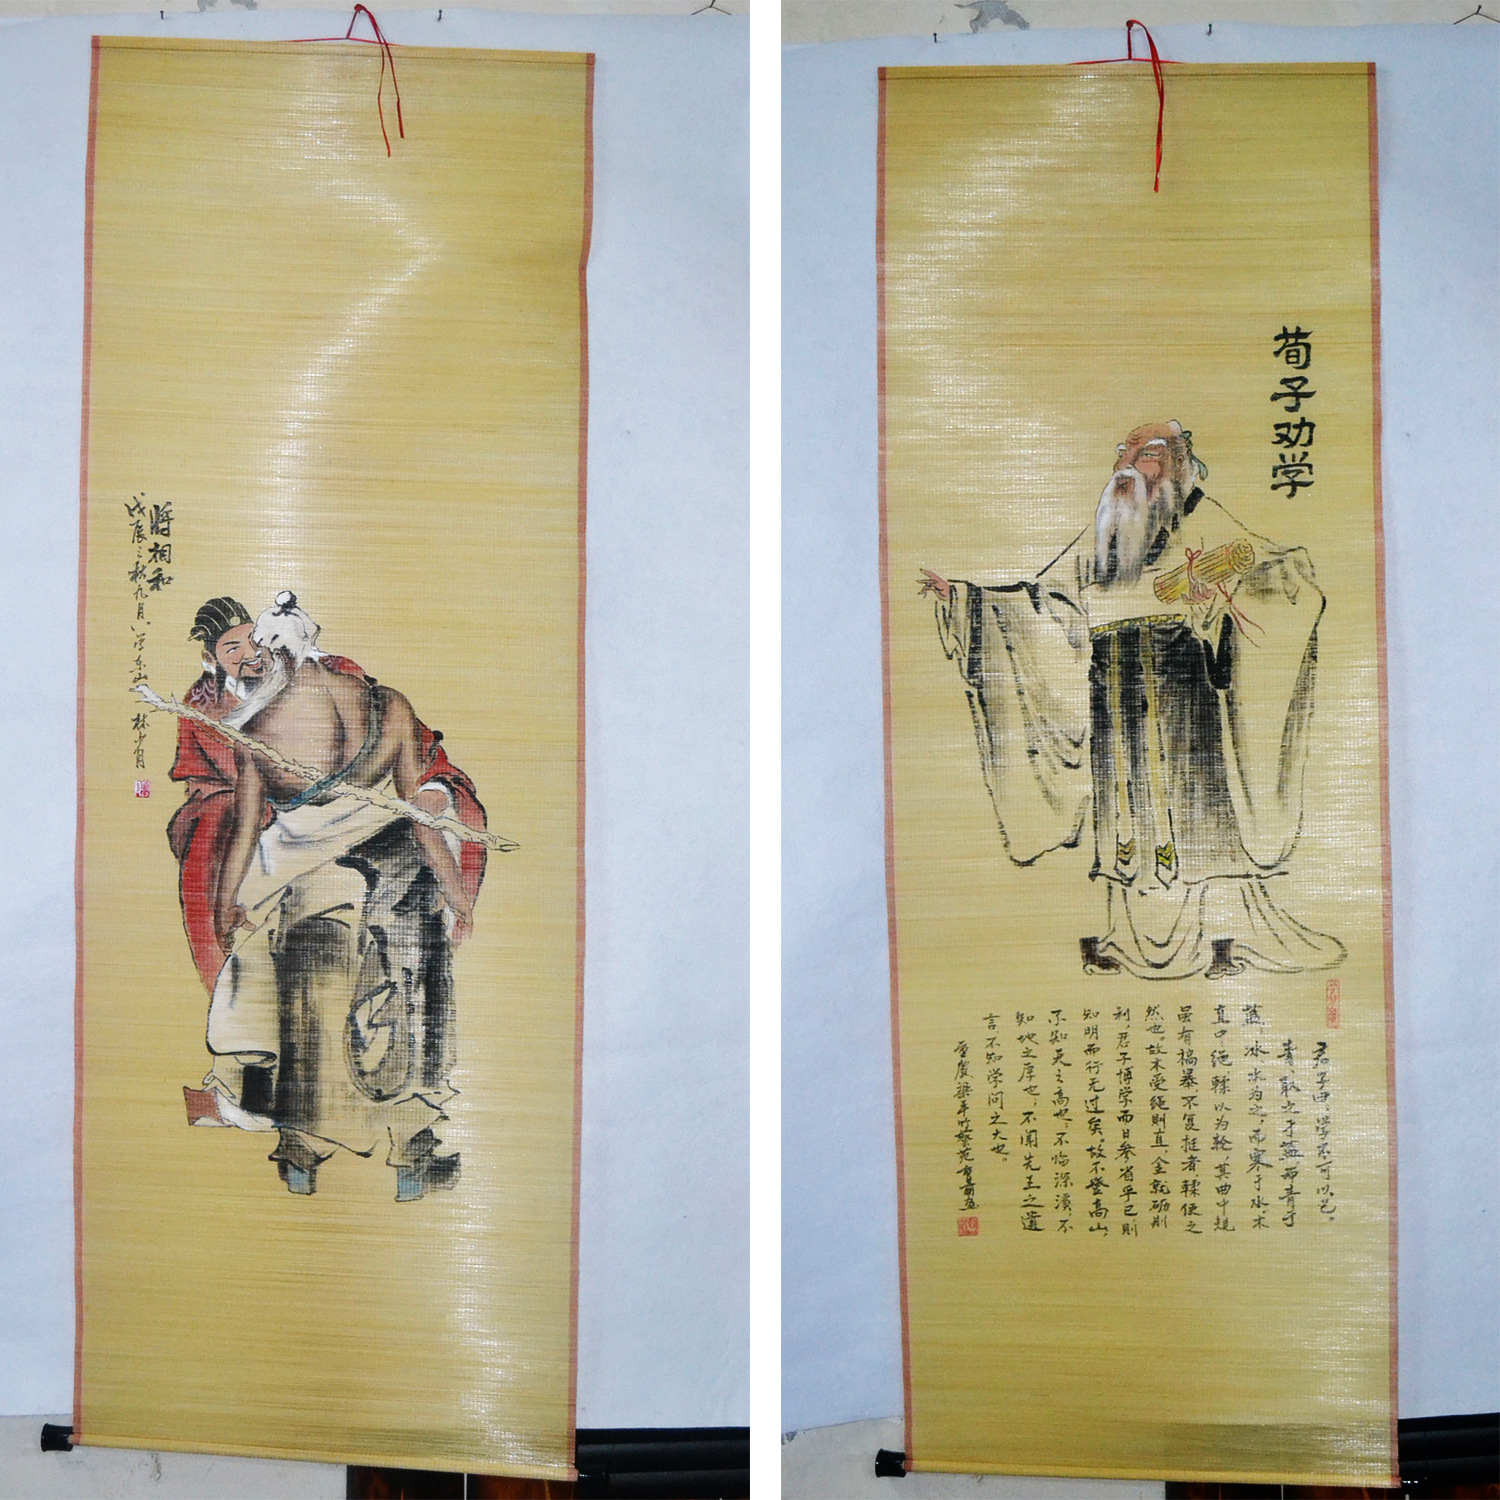 将相和
戊辰之秋九月
荀子劝学
君子曰：学不可以已。
青、取之于蓝而青于
蓝，冰水为之，而寒于水。木
直中绳，輮以为轮，其曲中规，
虽有槁暴、不复挺者，輮使之
然也。故木受绳则直，金就砺则
利，君子博学而日参省乎己，则
知明而行无过矣。故不登高山，
不知天之高也，不临深溪，不
知地之厚也；不闻先王之遗
言，不知学问之大也。
重庆梁平竹艺苑